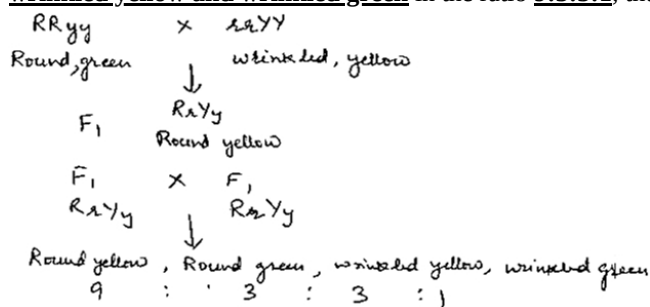 wrinkled yellow and wrinkled green in the ratio 9:3:3:1, the
RRyy × rrYY
Round, green wrinkled, yellow
RrYy
F₁ Round yellow
F₁ × F₁
RrYy RrYy
Round yellow, Round green, wrinkled yellow, wrinkled green
9 : 3 : 3 : 1